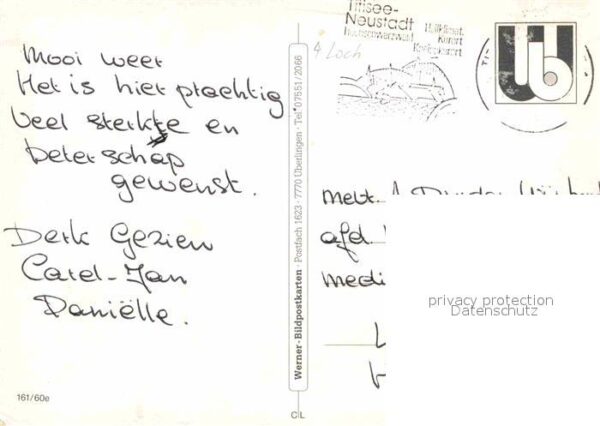 Mooi weer
Het is hier prachtig
Veel sterkte en
beterschap
gewenst.
Derk Gezien
Carel-Jan
Daniëlle.
161/60e
Werner-Bildpostkarten · Postfach 1623 · 7770 Überlingen · Tel. 07551/2066
C L
Titisee-
Neustadt
Hochschwarzwald
Heilklimat.
Kurort
Kneippkurort
4 Loch
afd
medi
privacy protection
Datenschutz